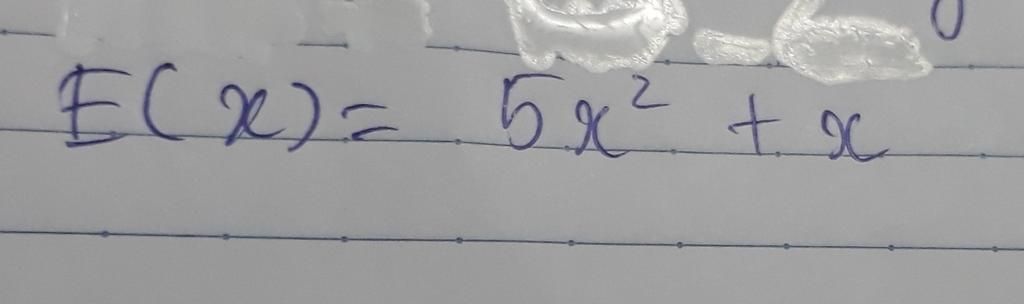 E(x) = 5x² + x